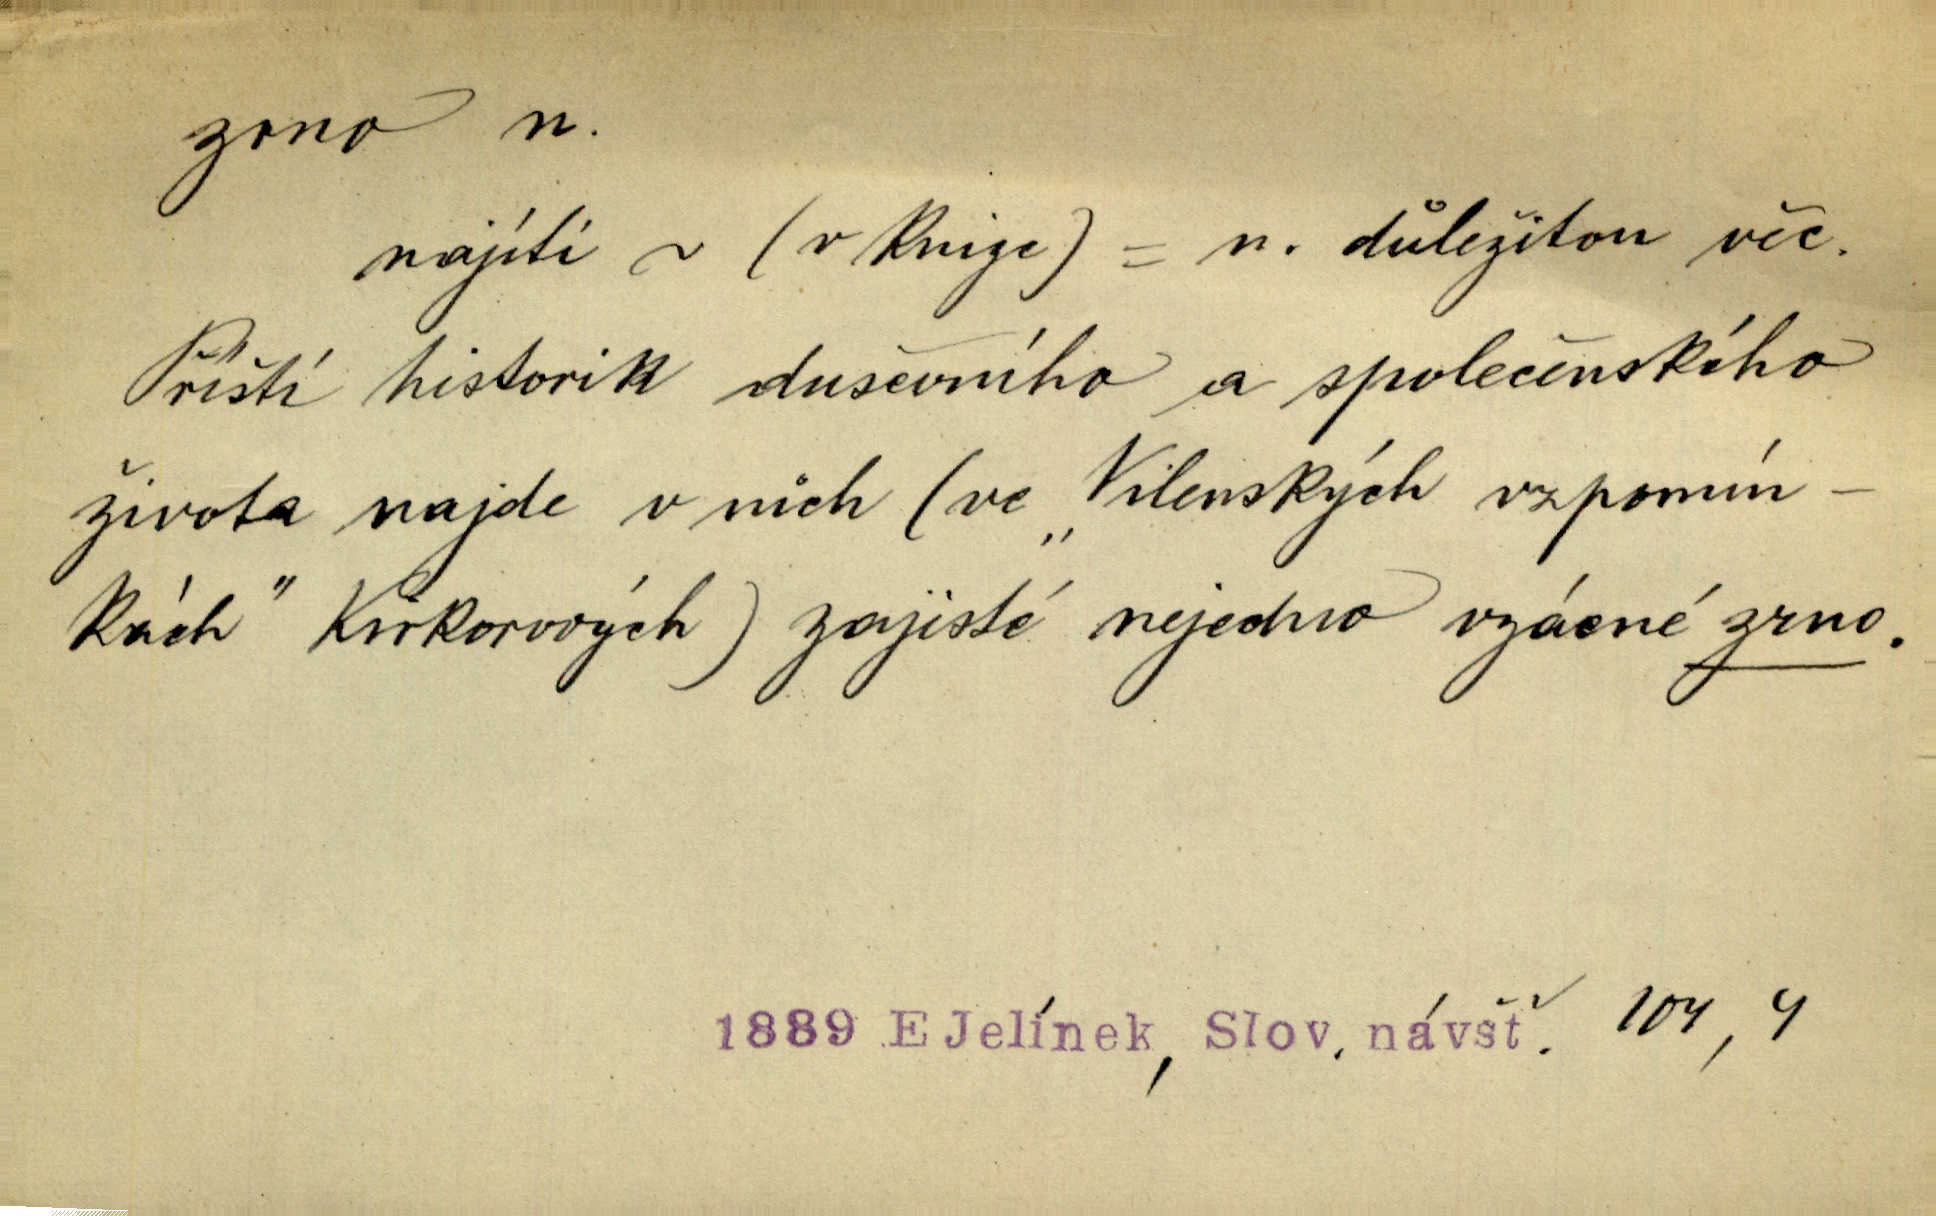 zrno n.
najíti ~ (v knize) = n. důležitou věc.
Příští historik duševního a společenského
života najde v nich (ve „Vilenských vzpomín-
kách" Kirkorových) zajisté nejedno vzácné zrno.
1889 E Jelínek, Slov. návšť. 104, 4